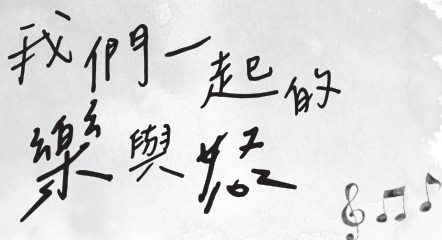 我們一起的
樂與怒